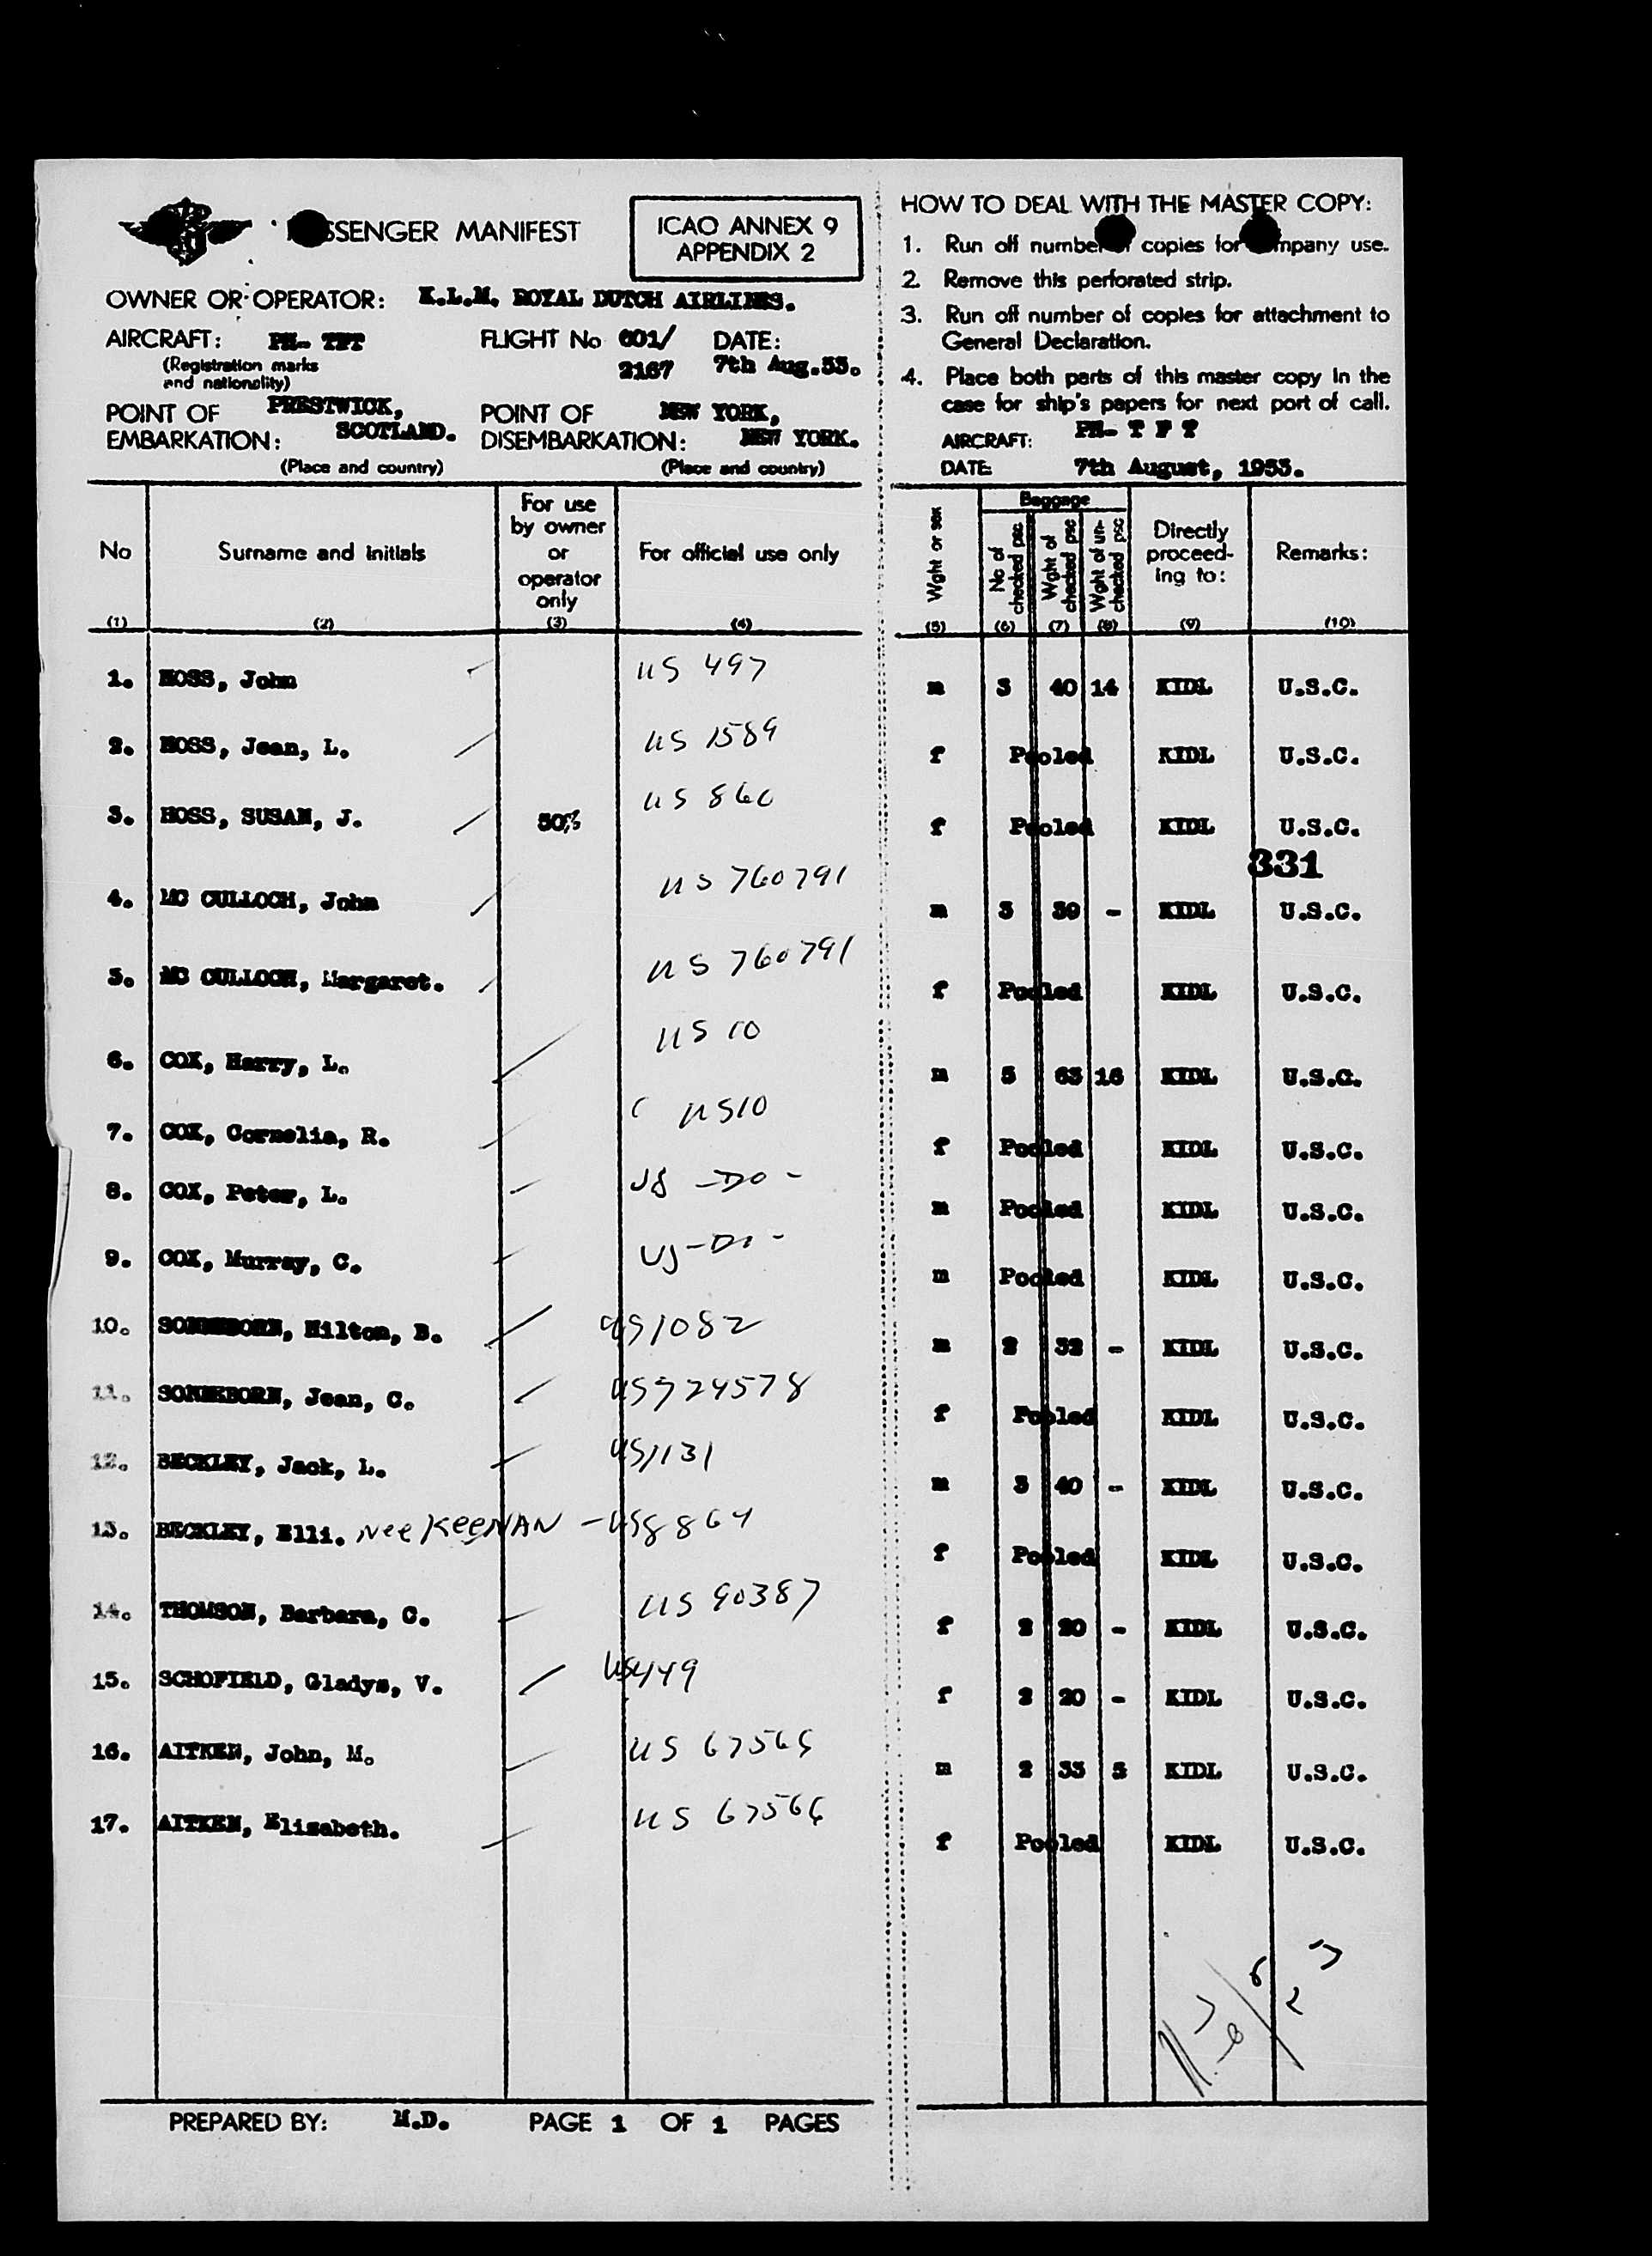 PASSENGER MANIFEST
ICAO ANNEX 9
APPENDIX 2
OWNER OR OPERATOR: K.L.M. ROYAL DUTCH AIRLINES.
AIRCRAFT: PH- TFT FLIGHT No 601/ DATE:
(Registration marks 2167 7th Aug.53.
and nationality)
POINT OF PRESTWICK, POINT OF NEW YORK,
EMBARKATION: SCOTLAND. DISEMBARKATION: NEW YORK.
(Place and country) (Place and country)
HOW TO DEAL WITH THE MASTER COPY:
1. Run off number of copies for company use.
2. Remove this perforated strip.
3. Run off number of copies for attachment to
General Declaration.
4. Place both parts of this master copy in the
case for ship's papers for next port of call.
AIRCRAFT: PH- T F T
DATE: 7th August, 1953.
No Surname and initials For use by owner or operator only For official use only Wght or sex Baggage No of checked psc Wght of checked psc Wght of un-checked psc Directly proceed-ing to: Remarks:
(1) (2) (3) (4) (5) (6) (7) (8) (9) (10)
1. HOSS, John US 497 m 3 40 14 KIDL U.S.C.
2. HOSS, Jean, L. US 1589 f Pooled KIDL U.S.C.
3. HOSS, SUSAN, J. 50% US 860 f Pooled KIDL U.S.C.
331
4. MC CULLOCH, John US 760791 m 3 39 - KIDL U.S.C.
5. MC CULLOCH, Margaret. US 760791 f Pooled KIDL U.S.C.
6. COX, Harry, L. US 10 m 5 63 16 KIDL U.S.C.
7. COX, Cornelia, R. US10 f Pooled KIDL U.S.C.
8. COX, Peter, L. US -DO- m Pooled KIDL U.S.C.
9. COX, Murray, C. US -DO- m Pooled KIDL U.S.C.
10. SONNEBORN, Milton, B. US1082 m 2 32 - KIDL U.S.C.
11. SONNEBORN, Jean, C. US724578 f Pooled KIDL U.S.C.
12. BECKLEY, Jack, L. US1131 m 3 40 - KIDL U.S.C.
13. BECKLEY, Elli. Nee KeeNAN - US8864 f Pooled KIDL U.S.C.
14. THOMSON, Barbara, C. US 90387 f 2 20 - KIDL U.S.C.
15. SCHOFIELD, Gladys, V. US449 f 2 20 - KIDL U.S.C.
16. AITKEN, John, M. US 67565 m 2 33 5 KIDL U.S.C.
17. AITKEN, Elizabeth. US 67566 f Pooled KIDL U.S.C.
PREPARED BY: M.D. PAGE 1 OF 1 PAGES